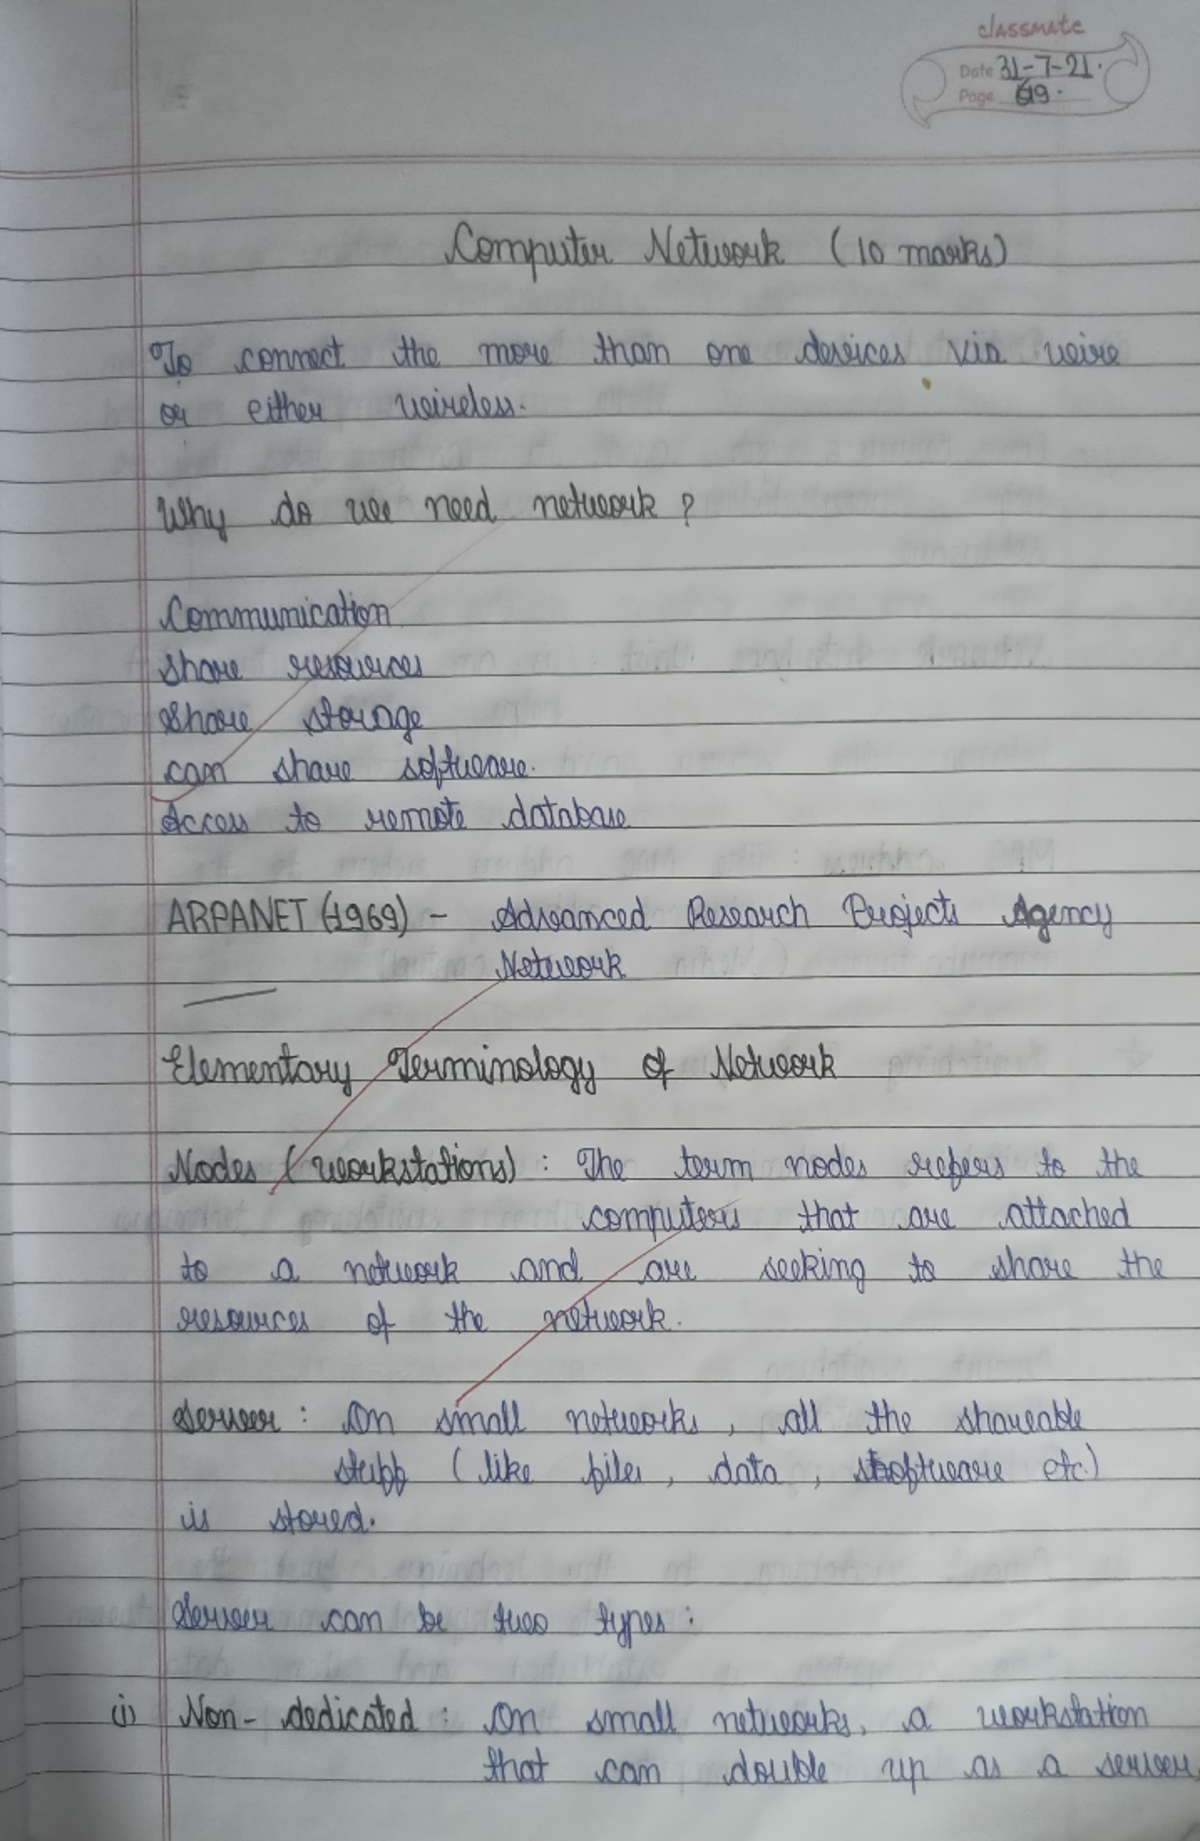 classmate
Date 31-7-21.
Page 69.
Computer Network (10 marks)
To connect the more than one devices via wire
or either wireless.
Why do we need network ?
Communication
share resources
Share storage
can share software.
Access to remote database
ARPANET (1969) - Advanced Research Projects Agency
Network
Elementary Terminology of Network
Nodes (workstations) : The term nodes refers to the
computers that are attached
to a network and are seeking to share the
resources of the network.
Server : On small networks, all the shareable
stuff (like files, data, software etc.)
is stored.
Server can be two types :
(i) Non-dedicated : On small networks, a workstation
that can double up as a server,